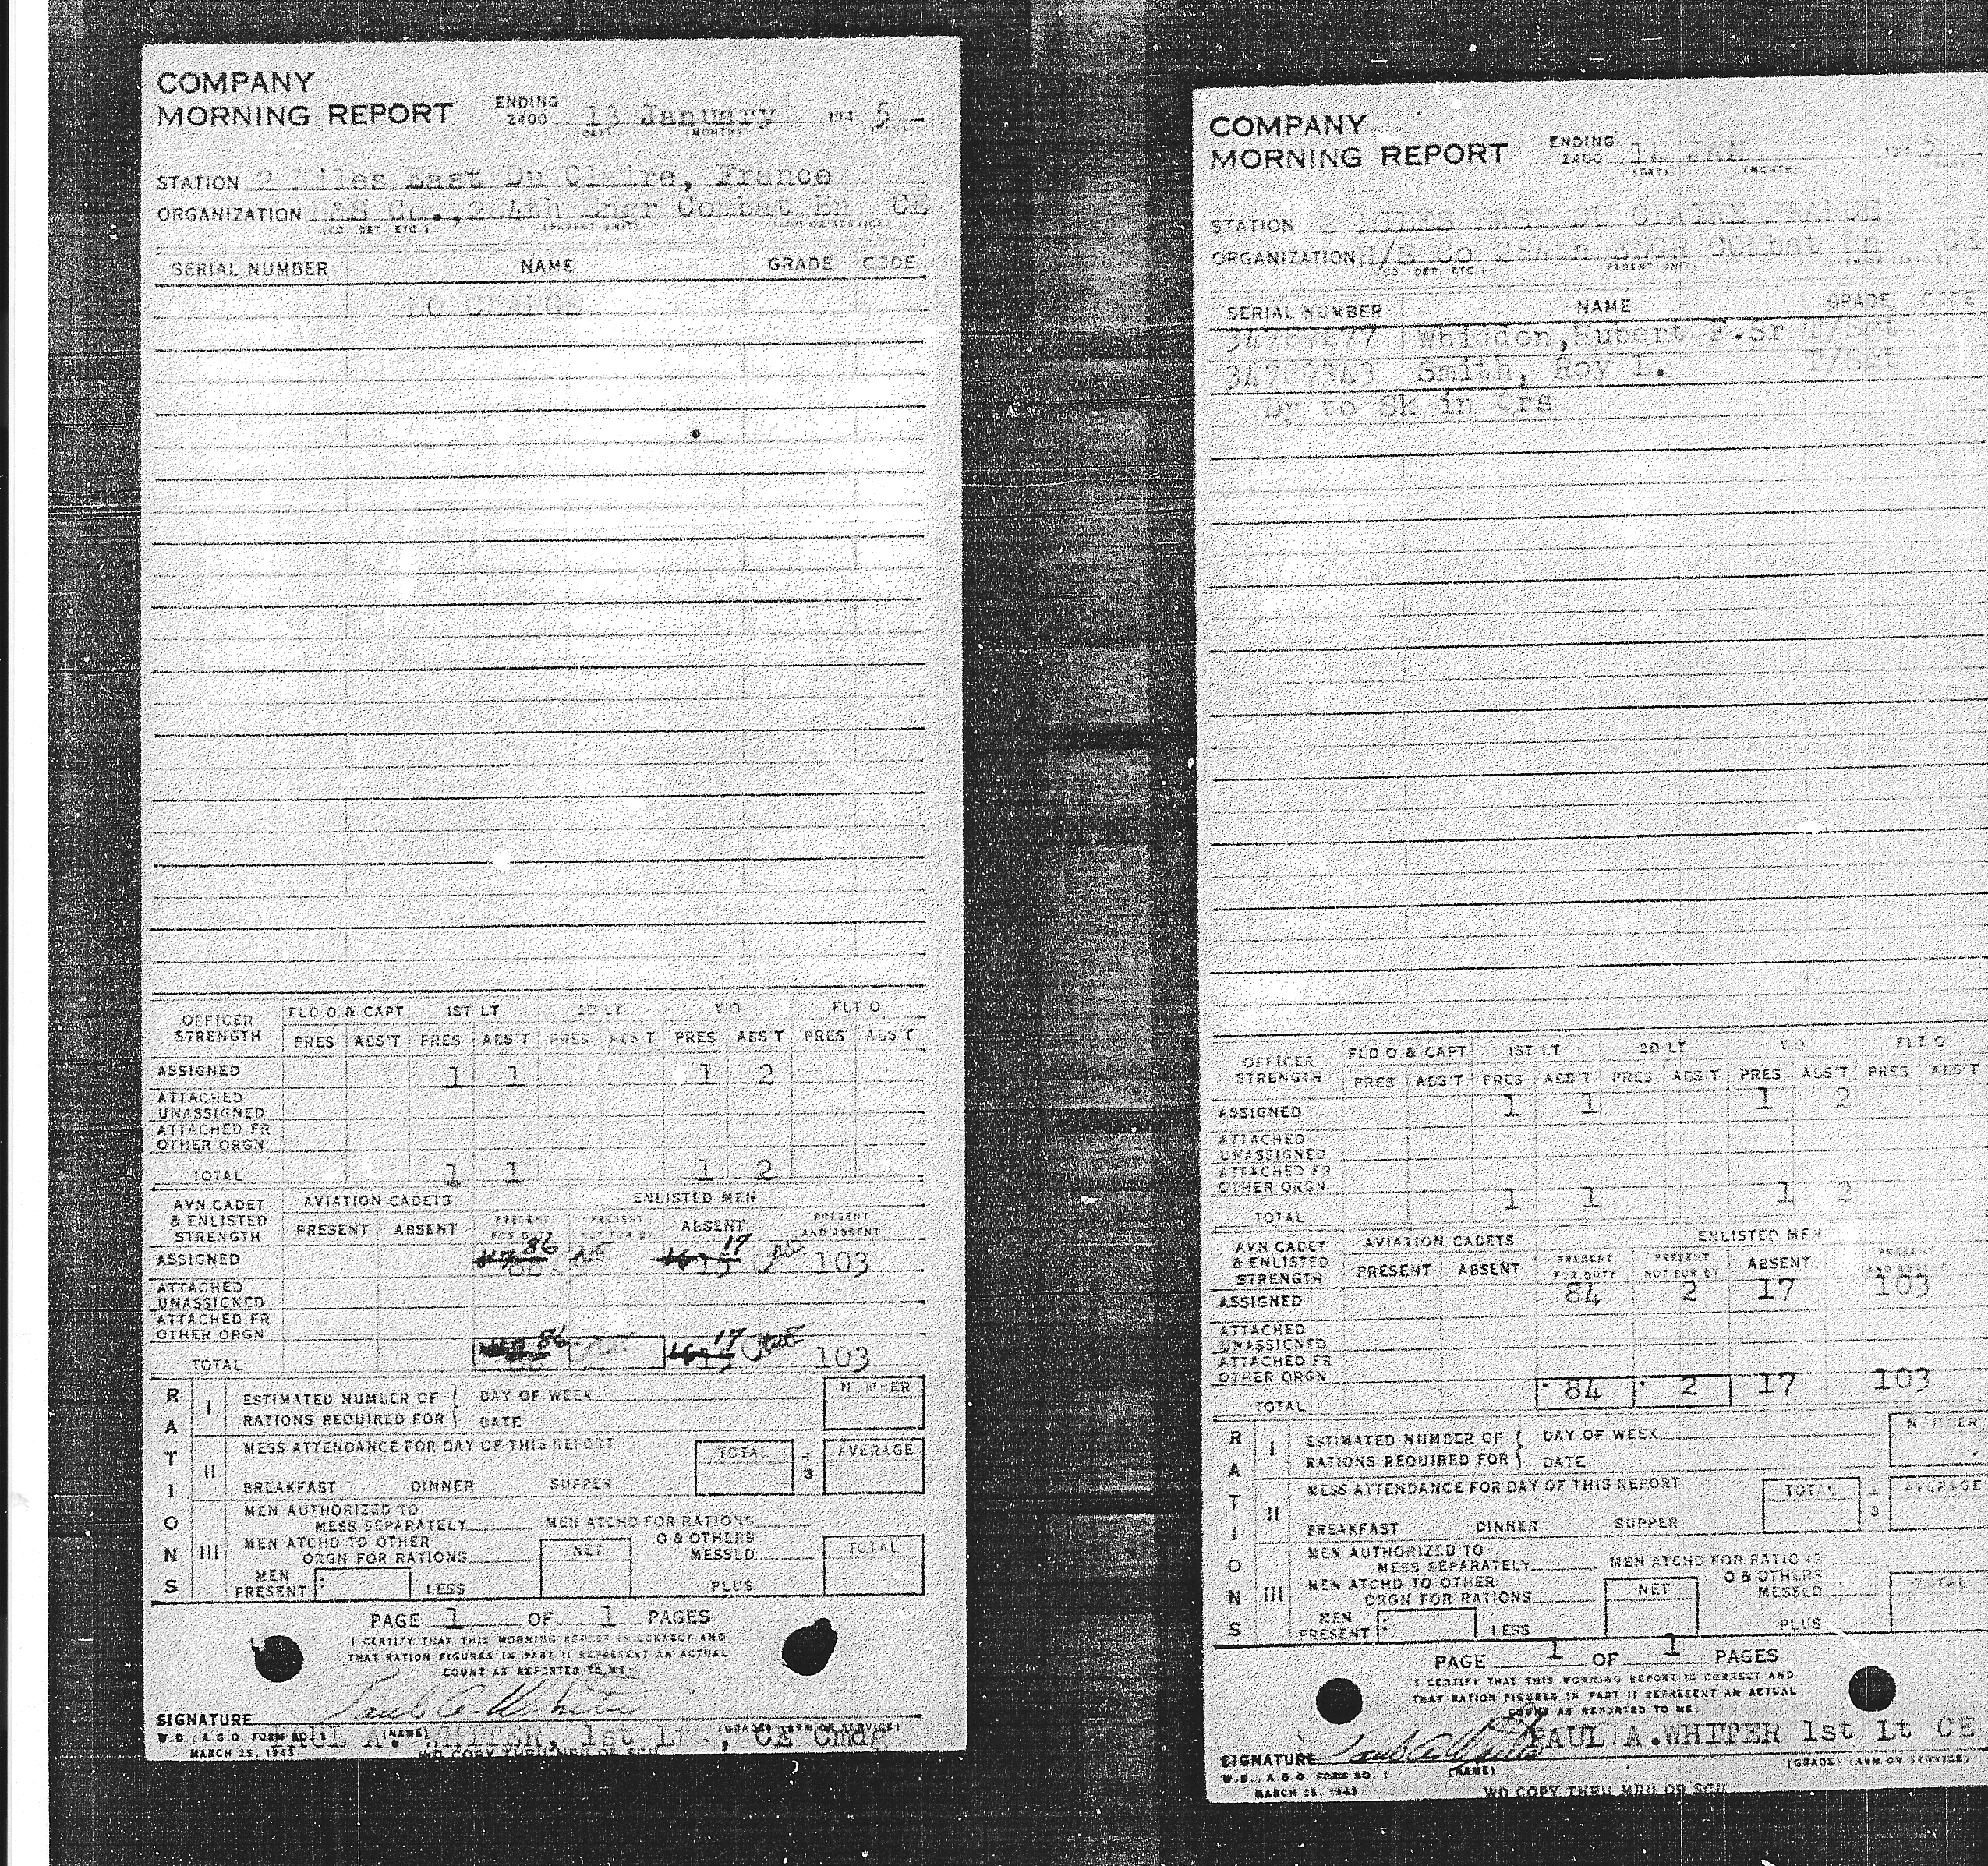 COMPANY
MORNING REPORT ENDING 2400 13 January 194 5
(DAY) (MONTH)
STATION 2 Miles East Du Claire, France
ORGANIZATION H&S Co., 284th Engr Combat Bn CE
(CO. DET. ETC.) (PARENT UNIT) (ARM OR SERVICE)
SERIAL NUMBER NAME GRADE CODE
NO CHANGE
OFFICER STRENGTH FLD O & CAPT 1ST LT 2D LT WO FLT O
PRES ABS'T PRES ABS'T PRES ABS'T PRES ABS'T PRES ABS'T
ASSIGNED 1 1 1 2
ATTACHED UNASSIGNED
ATTACHED FR OTHER ORGN
TOTAL 1 1 1 2
AVN CADET & ENLISTED STRENGTH AVIATION CADETS ENLISTED MEN
PRESENT ABSENT PRESENT FOR DUTY PRESENT NOT FOR DY ABSENT PRESENT AND ABSENT
ASSIGNED 86 17 103
ATTACHED UNASSIGNED
ATTACHED FR OTHER ORGN
TOTAL 86 17 103
RATIONS
I ESTIMATED NUMBER OF RATIONS REQUIRED FOR DAY OF WEEK DATE NUMBER
II MESS ATTENDANCE FOR DAY OF THIS REPORT TOTAL ÷ 3 AVERAGE
BREAKFAST DINNER SUPPER
III MEN AUTHORIZED TO MESS SEPARATELY MEN ATCHD FOR RATIONS
MEN ATCHD TO OTHER ORGN FOR RATIONS NET O & OTHERS MESSED TOTAL
MEN PRESENT LESS PLUS
PAGE 1 OF 1 PAGES
I CERTIFY THAT THIS MORNING REPORT IS CORRECT AND
THAT RATION FIGURES IN PART II REPRESENT AN ACTUAL
COUNT AS REPORTED TO ME.
Paul A. Whiter
SIGNATURE PAUL A. WHITER, 1st Lt., CE Cmdg
(NAME) (GRADE) (ARM OR SERVICE)
W.D., A.G.O. FORM NO. 1
MARCH 25, 1943 WD COPY THRU MRU OR SCU
COMPANY
MORNING REPORT ENDING 2400 14 JAN 194
(DAY) (MONTH)
STATION 2 MILES EAST DU CLAIRE FRANCE
ORGANIZATION H/S Co 284th ENGR COMbat Bn CE
(CO. DET. ETC.) (PARENT UNIT)
SERIAL NUMBER NAME GRADE CODE
Whiddon, Hubert F. Sr T/Sgt
Smith, Roy L. T/Sgt
Dy to Sk in Qrs
OFFICER STRENGTH FLD O & CAPT 1ST LT 2D LT WO FLT O
PRES ABS'T PRES ABS'T PRES ABS'T PRES ABS'T PRES ABS'T
ASSIGNED 1 1 1 2
ATTACHED UNASSIGNED
ATTACHED FR OTHER ORGN
TOTAL 1 1 1 2
AVN CADET & ENLISTED STRENGTH AVIATION CADETS ENLISTED MEN
PRESENT ABSENT PRESENT FOR DUTY PRESENT NOT FOR DY ABSENT PRESENT AND ABSENT
ASSIGNED 84 2 17 103
ATTACHED UNASSIGNED
ATTACHED FR OTHER ORGN
TOTAL 84 2 17 103
RATIONS
I ESTIMATED NUMBER OF RATIONS REQUIRED FOR DAY OF WEEK DATE NUMBER
II MESS ATTENDANCE FOR DAY OF THIS REPORT TOTAL ÷ 3 AVERAGE
BREAKFAST DINNER SUPPER
III MEN AUTHORIZED TO MESS SEPARATELY MEN ATCHD FOR RATIONS
MEN ATCHD TO OTHER ORGN FOR RATIONS NET O & OTHERS MESSED TOTAL
MEN PRESENT LESS PLUS
PAGE 1 OF 1 PAGES
I CERTIFY THAT THIS MORNING REPORT IS CORRECT AND
THAT RATION FIGURES IN PART II REPRESENT AN ACTUAL
COUNT AS REPORTED TO ME.
SIGNATURE Paul A. Whiter PAUL A. WHITER 1st Lt CE
(NAME) (GRADE) (ARM OR SERVICE)
W.D., A.G.O. FORM NO. 1
MARCH 25, 1943 WD COPY THRU MRU OR SCU